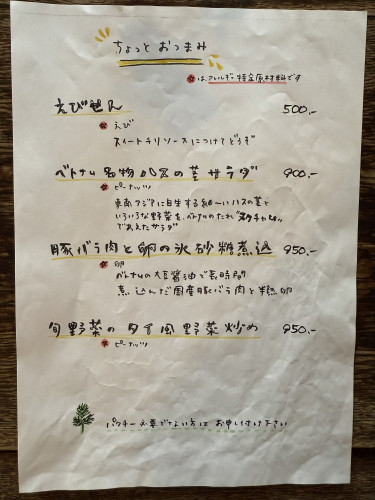 ちょっとおつまみ
はアレルギー特定原材料です
えびせん 500.-
えび
スイートチリソースにつけてどうぞ
ベトナム名物ハスの茎サラダ 900.-
ピーナッツ
東南アジアに自生する細ーいハスの茎と
いろいろな野菜を、ベトナムのたれ"ヌクチャム"
であえたサラダ
豚バラ肉と卵の氷砂糖煮込 950.-
卵
ベトナムの大豆醤油で長時間
煮込んだ国産豚バラ肉と半熟卵
旬野菜のタイ風野菜炒め 950.-
ピーナッツ
パクチー必要でない方はお申し付け下さい